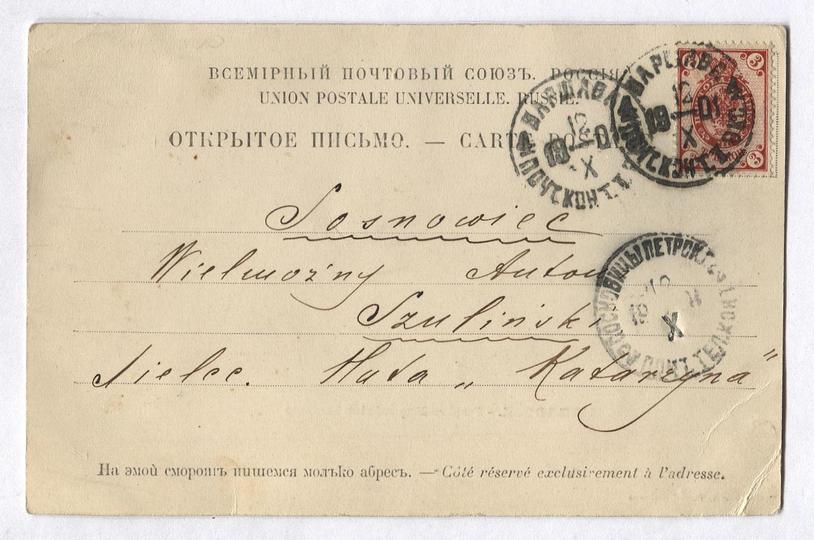 ВСЕМІРНЫЙ ПОЧТОВЫЙ СОЮЗЪ. РОССІЯ
UNION POSTALE UNIVERSELLE. RUSSIE.
ОТКРЫТОЕ ПИСЬМО. — CARTE POSTALE
3
3
3
ВАРШАВА
12
19 – 01
X
ПОЧТ. КОНТ.
ВАРШАВА
12
19 – 01
X
ПОЧТ. КОНТ.
Sosnowiec
Wielmożny Anton
Szuliński
Sielce. Huta „Katarzyna"
СОСНОВИЦЫ ПЕТРОК.
X
ПОЧТ. ТЕЛ. КОН
На этой сторонѣ пишется только адресъ. — Côté réservé exclusirement à l'adresse.